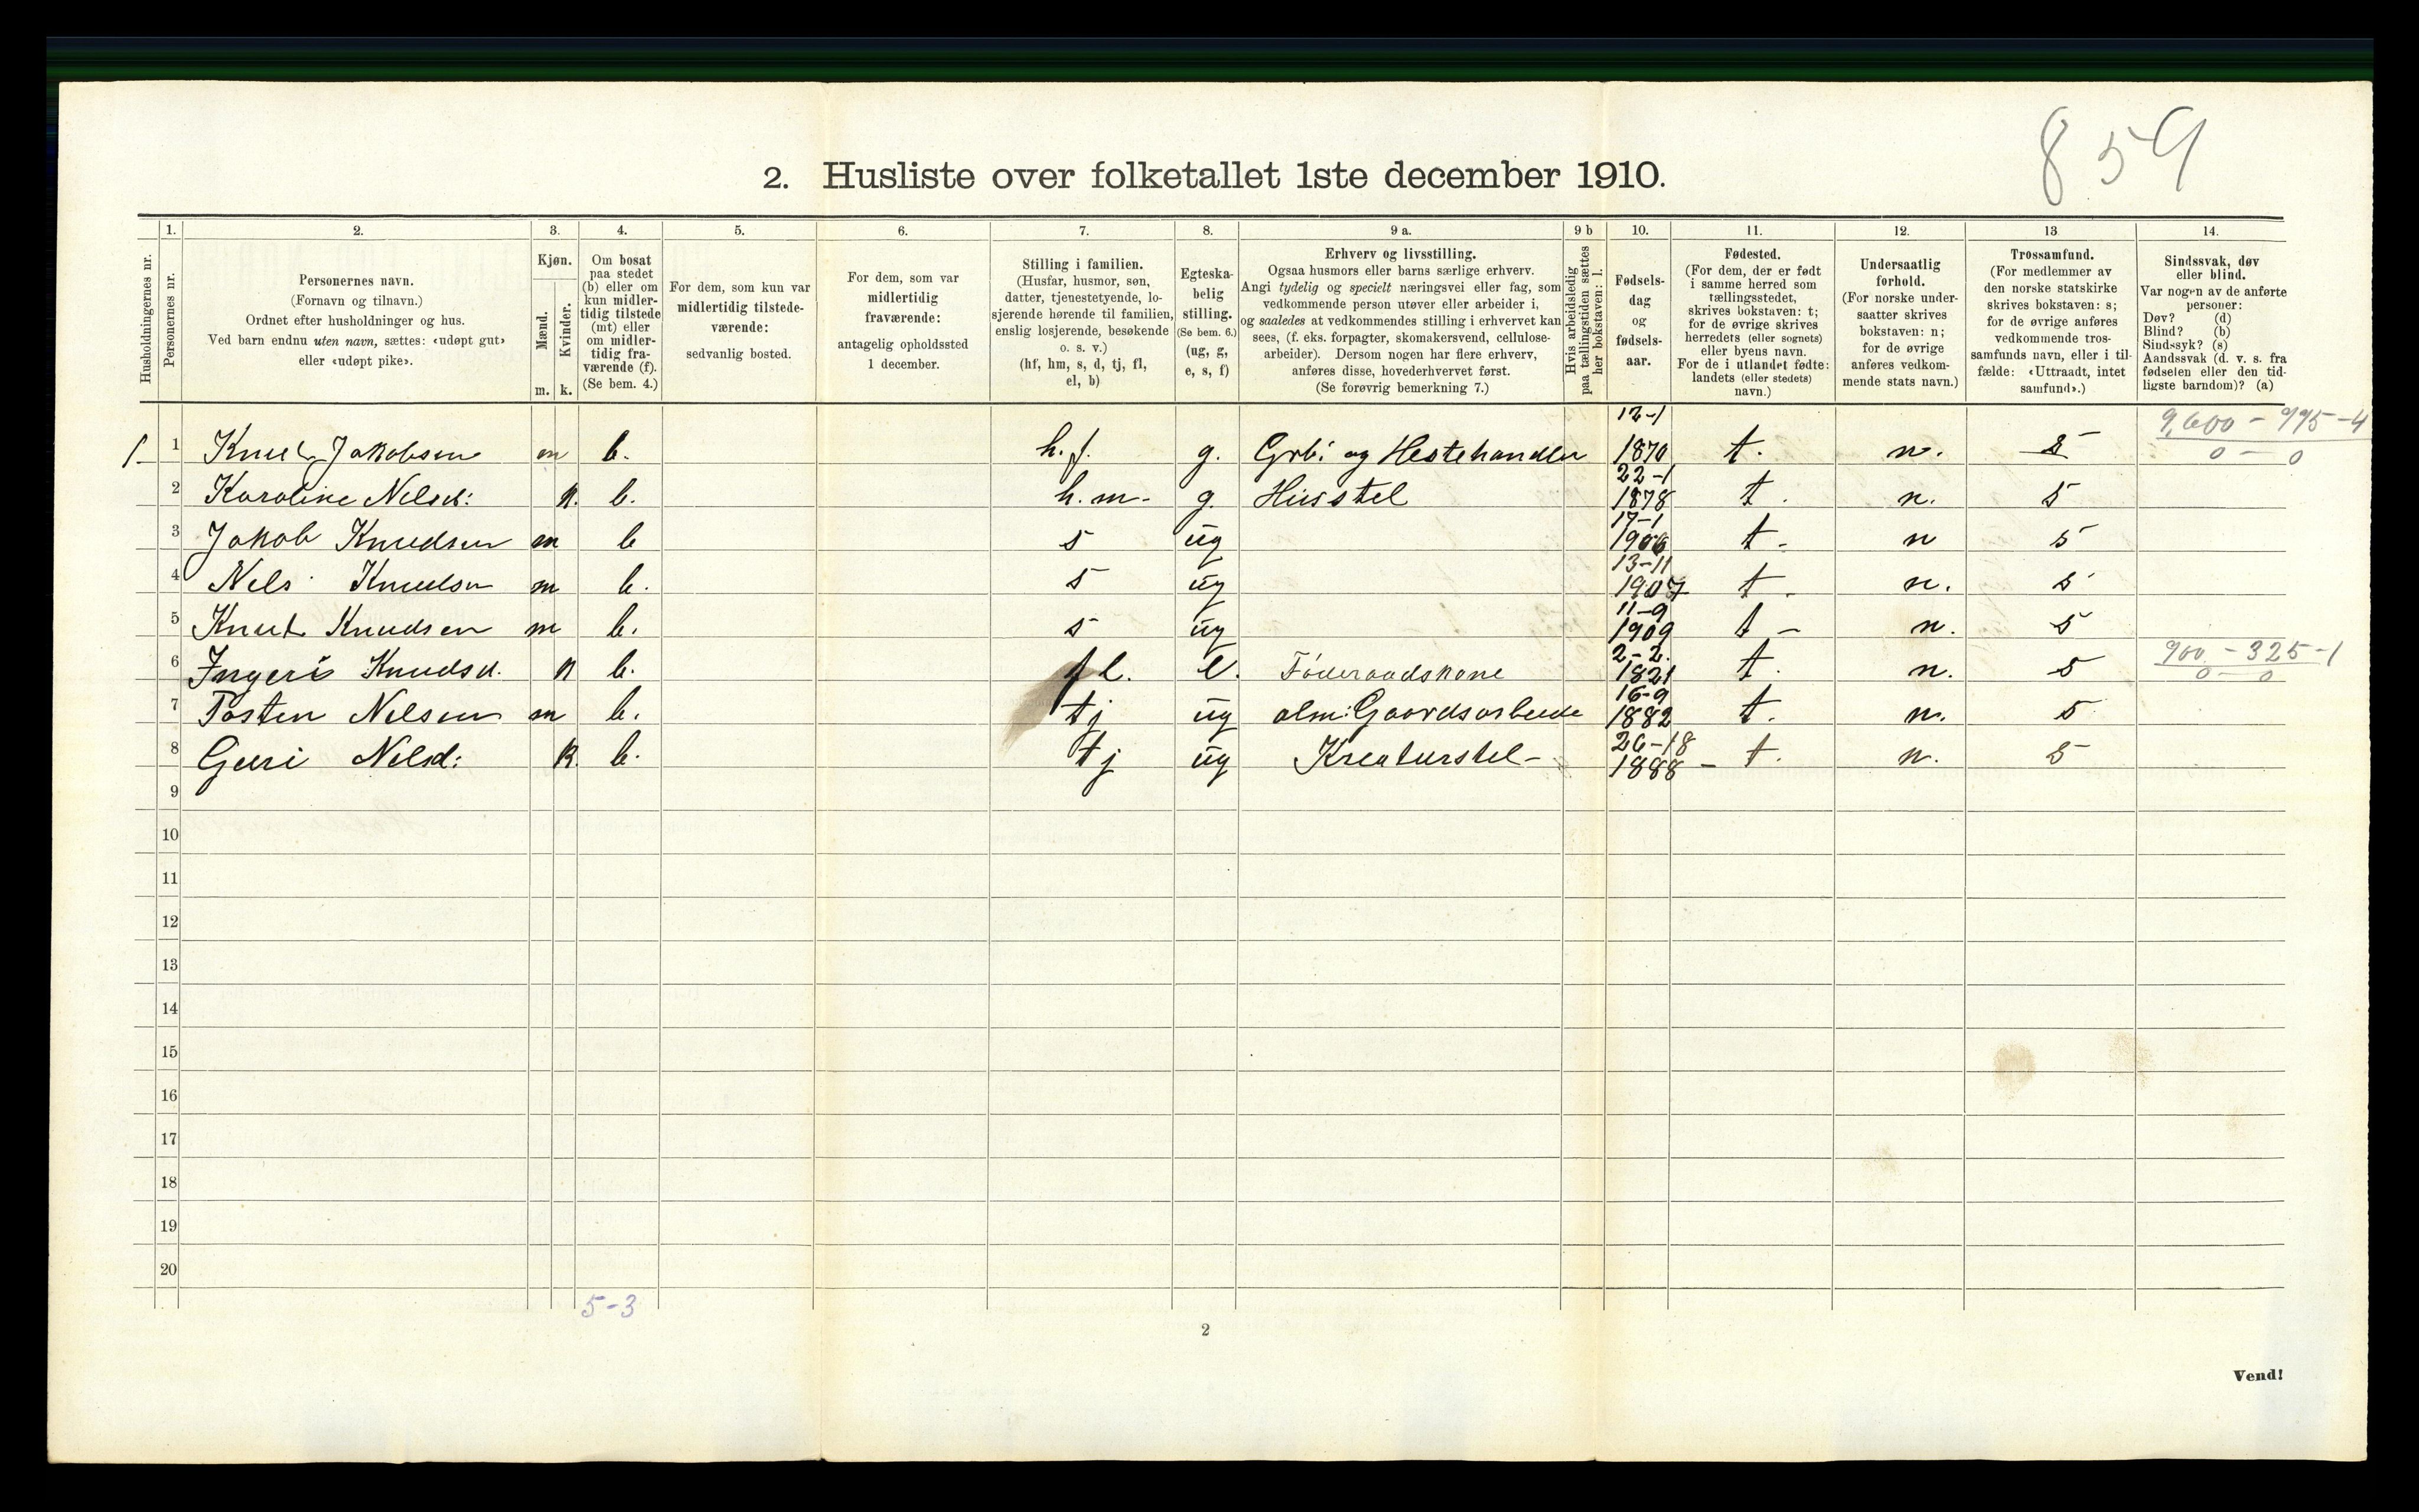 859
2. Husliste over folketallet 1ste december 1910.
Husholdningernes nr.
1.
Personernes nr.
2.
Personernes navn.
(Fornavn og tilnavn.)
Ordnet efter husholdninger og hus.
Ved barn endnu uten navn, sættes: «udøpt gut»
eller «udøpt pike».
3.
Kjøn.
Mænd.
Kvinder.
m. k.
4.
Om bosat
paa stedet
(b) eller om
kun midler-
tidig tilstede
(mt) eller
om midler-
tidig fra-
værende (f).
(Se bem. 4.)
5.
For dem, som kun var
midlertidig tilstede-
værende:
sedvanlig bosted.
6.
For dem, som var
midlertidig
fraværende:
antagelig opholdssted
1 december.
7.
Stilling i familien.
(Husfar, husmor, søn,
datter, tjenestetyende, lo-
sjerende hørende til familien,
enslig losjerende, besøkende
o. s. v.)
(hf, hm, s, d, tj, fl,
el, b)
8.
Egteska-
belig
stilling.
(Se bem. 6.)
(ug, g,
e, s, f)
9 a.
Erhverv og livsstilling.
Ogsaa husmors eller barns særlige erhverv.
Angi tydelig og specielt næringsvei eller fag, som
vedkommende person utøver eller arbeider i,
og saaledes at vedkommendes stilling i erhvervet kan
sees, (f. eks. forpagter, skomakersvend, cellulose-
arbeider). Dersom nogen har flere erhverv,
anføres disse, hovederhvervet først.
(Se forøvrig bemerkning 7.)
9 b
Hvis arbeidsledig
paa tællingstiden sættes
her bokstaven: l.
10.
Fødsels-
dag
og
fødsels-
aar.
11.
Fødested.
(For dem, der er født
i samme herred som
tællingsstedet,
skrives bokstaven: t;
for de øvrige skrives
herredets (eller sognets)
eller byens navn.
For de i utlandet fødte:
landets (eller stedets)
navn.)
12.
Undersaatlig
forhold.
(For norske under-
saatter skrives
bokstaven: n;
for de øvrige
anføres vedkom-
mende stats navn.)
13
Trossamfund.
(For medlemmer av
den norske statskirke
skrives bokstaven: s;
for de øvrige anføres
vedkommende tros-
samfunds navn, eller i til-
fælde: «Uttraadt, intet
samfund».)
14.
Sindssvak, døv
eller blind.
Var nogen av de anførte
personer:
Døv? (d)
Blind? (b)
Sindssyk? (s)
Aandssvak (d. v. s. fra
fødselen eller den tid-
ligste barndom)? (a)
1. 1 Knut Jakobsen m b. h.f. g. Grbr og Hestehandler 12-1 1870 t. n. s 9,600 - 995 - 4 0 - 0
2 Karoline Nelsd: k. b. h.m. g. Husstel 22-1 1878 t. n. s
3 Jakob Knudsen m b s ug 17-1 1906 t- n s
4 Nels Knudsen m b. s ug 13-11 1907 t- n. s
5 Knut Knudsen m b. s ug 11-9 1909 t- n. s
6 Ingeri Knudsd. k b. fl. e. Føderaadskone 2-2. 1821 t. n. s 900 - 325 - 1 0 - 0
7 Tosten Nelsen m b. tj ug alm: Gaardsarbeide 16-9 1882 t. n. s
8 Guri Nelsd: k. b. tj ug Kreaturstel- 1888 - t. n. s
9
10
11
12
13
14
15
16
17
18
19
20
5-3
2
Vend!